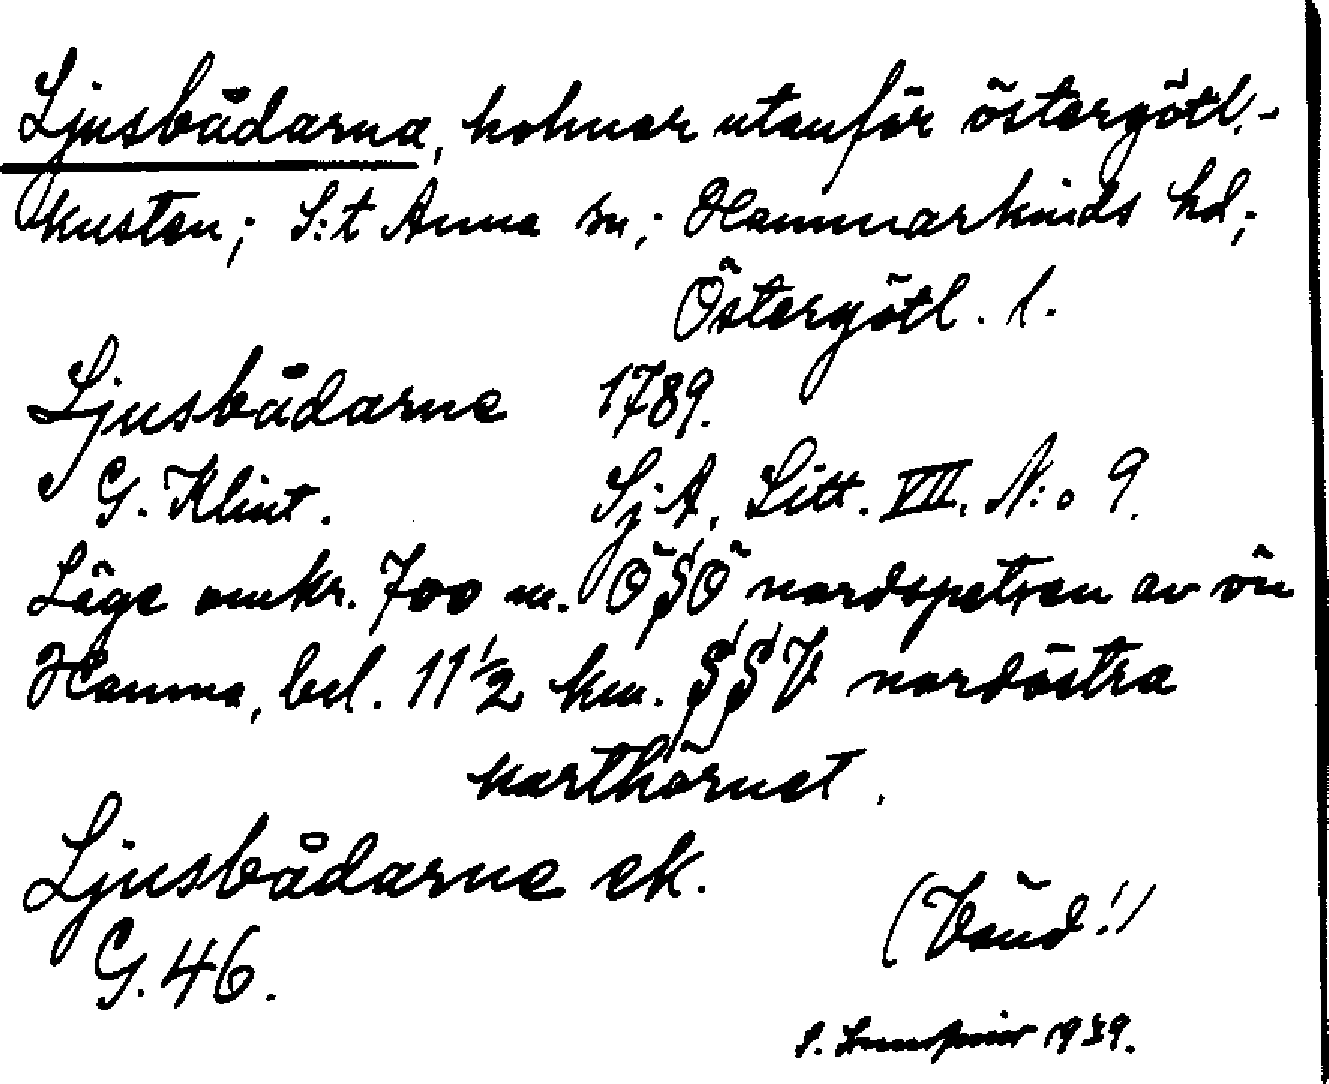 Ljusbådarna, holmar utanför östergötl.-
kusten; S:t Anna sn; Hammarkinds hd;
Östergötl. l.
Ljusbådarne 1789.
G. Klint. SjA, Litt. VII. N:o 9.
Läge omkr. 700 m. ÖSÖ nordspetsen av ön
Hamma, bel. 11 1/2 km. SSV nordöstra
karthörnet.
Ljusbådarne ek.
G. 46.
(Vänd!)
S. 1939.